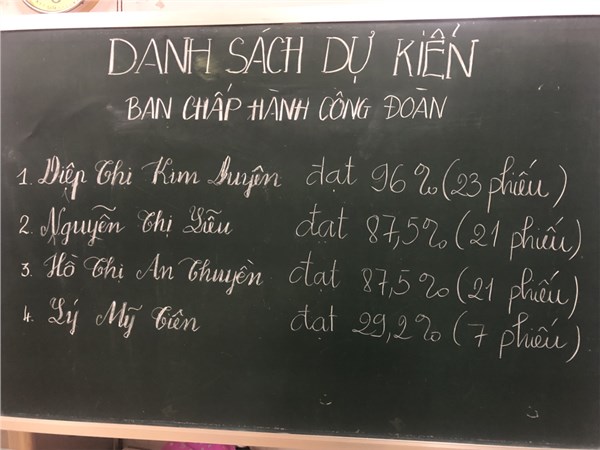 DANH SÁCH DỰ KIẾN
BAN CHẤP HÀNH CÔNG ĐOÀN
1. Diệp Thị Kim Duyên đạt 96% (23 phiếu)
2. Nguyễn Thị Liễu đạt 87,5% (21 phiếu)
3. Hồ Thị An Thuyền đạt 87,5% (21 phiếu)
4. Lý Mỹ Tiên đạt 29,2% (7 phiếu)